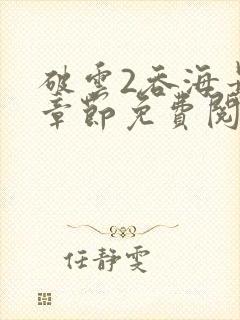 破雲2吞海最
章節免費閱
任靜雯